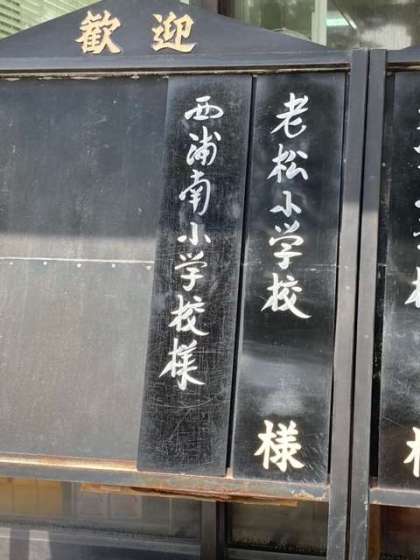 歓迎
老松小学校 様
西浦南小学校様
様